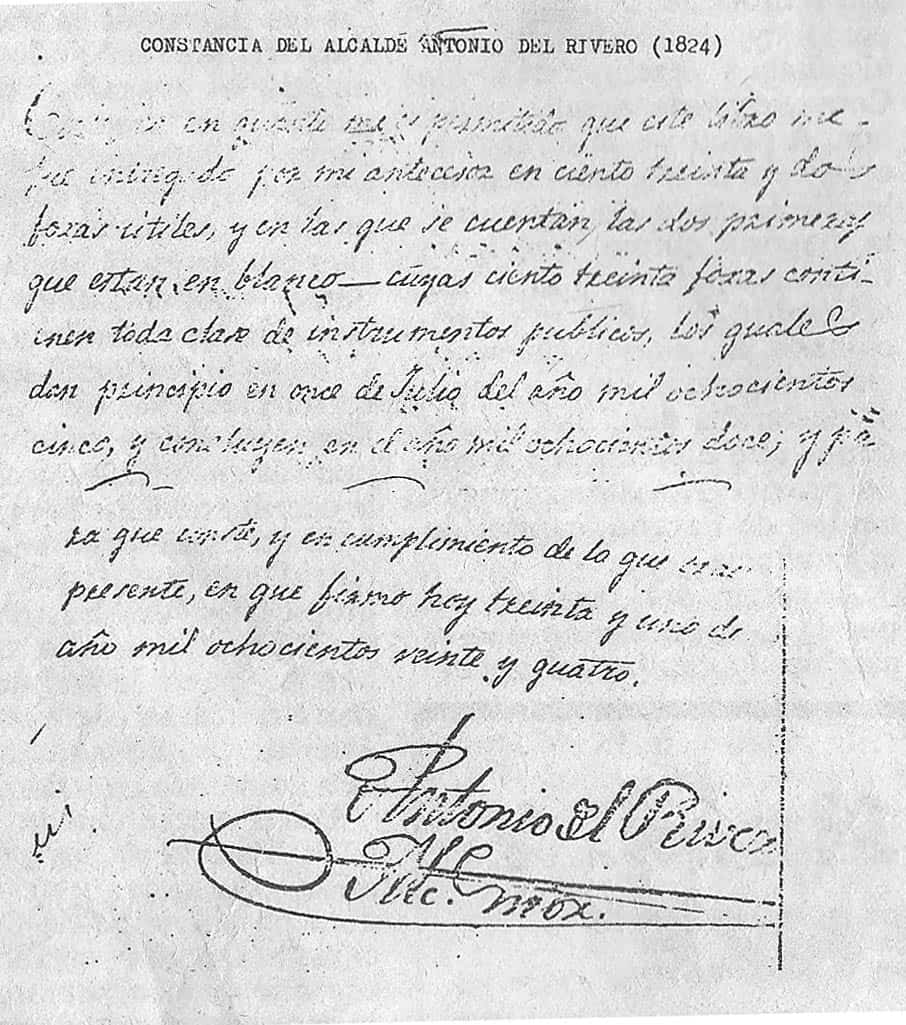 CONSTANCIA DEL ALCALDE ANTONIO DEL RIVERO (1824)
en quanto me es permitido que este libro me
fue entregado por mi antecesor en ciento treinta y dos
foxas útiles, y en las que se cuentan, las dos primeras
que estan en blanco — cuyas ciento treinta foxas conti-
enen toda clase de instrumentos publicos, los quales
dan principio en once de Julio del año mil ochocientos
cinco, y concluyen en el año mil ochocientos doce; y pa-
ra que conste, y en cumplimiento de lo que
presente, en que firmo hoy treinta y uno de
año mil ochocientos veinte y quatro.
Antonio del Rivero
Alc.